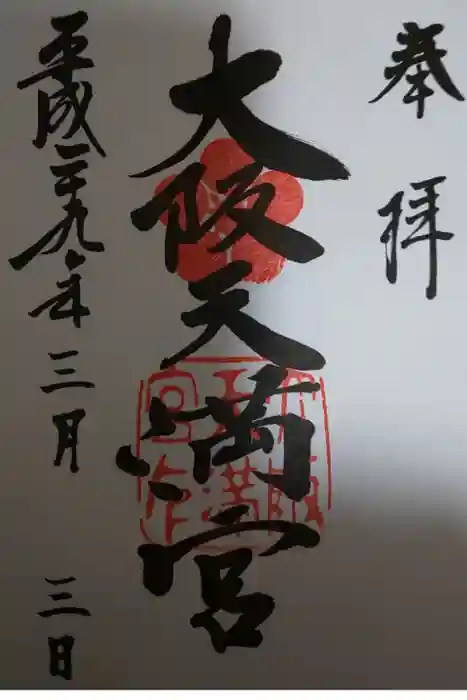 奉拝
大阪天満宮
平成二十九年三月三日